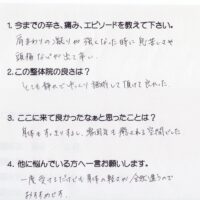 1. 今までの辛さ、痛み、エピソードを教えて下さい。
肩まわりの凝りが強くなった時に息苦しさや
頭痛などが出て辛い
2. この整体院の良さは？
とても静かでゆっくり施術して頂けて良かった
3. ここに来て良かったなぁと思ったことは？
身体もすっきりするし、雰囲気も癒される空間でした
4. 他に悩んでいる方へ一言お願いします。
一度受けるだけでも身体の軽さが全然違うので
おすすめです。